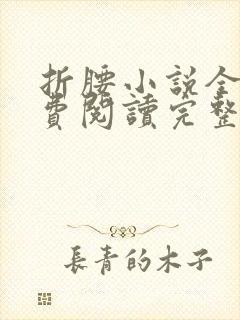 折腰小说全
費閱讀完整
長青的木子